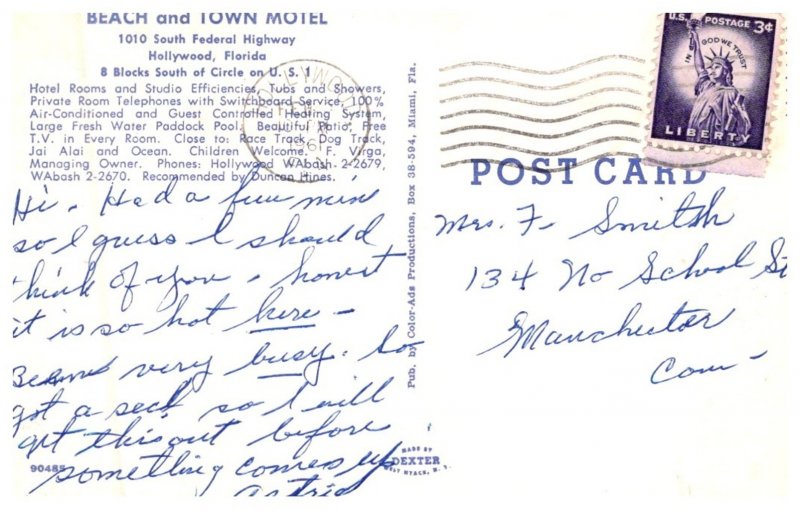 BEACH and TOWN MOTEL
1010 South Federal Highway
Hollywood, Florida
8 Blocks South of Circle on U. S. 1
Hotel Rooms and Studio Efficiencies, Tubs and Showers,
Private Room Telephones with Switchboard Service, 100%
Air-Conditioned and Guest Controlled Heating System,
Large Fresh Water Paddock Pool. Beautiful Patio, Free
T.V. in Every Room. Close to: Race Track, Dog Track,
Jai Alai and Ocean. Children Welcome. F. Virga,
Managing Owner. Phones: Hollywood WAbash 2-2679,
WAbash 2-2670. Recommended by Duncan Hines.
Hi. Had a few min
so I guess I should
think of you. honest
it is so hot here -
Been very busy. So
got a sec so I will
get this out before
something comes up
Astrid
90485
Pub. by Color-Ads Productions, Box 38-594, Miami, Fla.
MADE BY
DEXTER
WEST NYACK, N. Y.
U.S. POSTAGE 3¢
IN GOD WE TRUST
LIBERTY
POST CARD
Mrs. F. Smith
134 No School St
Manchester
Conn -